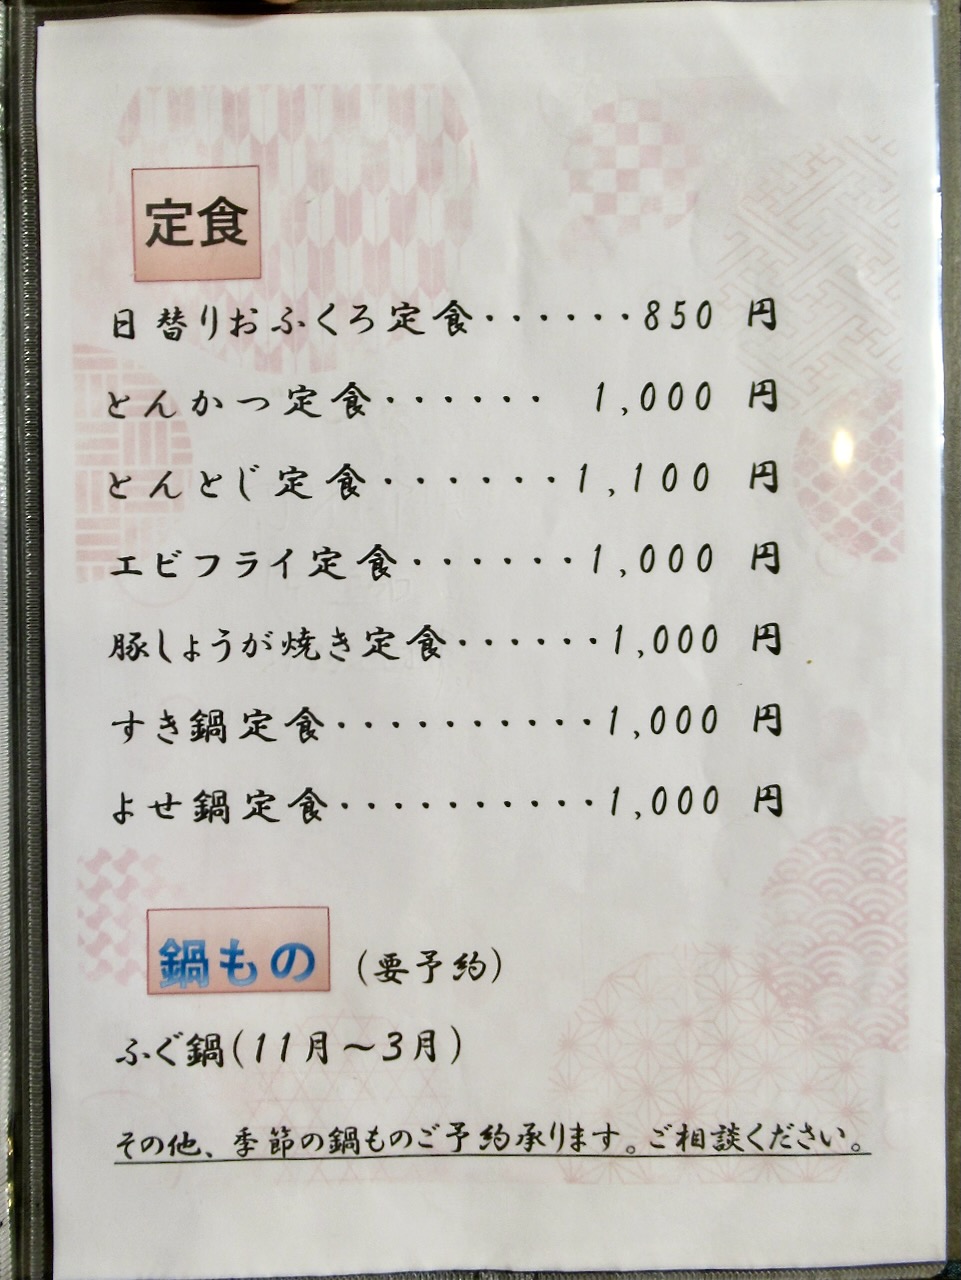 定食
日替りおふくろ定食・・・・・・850 円
とんかつ定食・・・・・・ 1,000 円
とんとじ定食・・・・・・・1,100 円
エビフライ定食・・・・・・・1,000 円
豚しょうが焼き定食・・・・・・1,000 円
すき鍋定食・・・・・・・・・・1,000 円
よせ鍋定食・・・・・・・・・・1,000 円
鍋もの (要予約)
ふぐ鍋(11月～3月)
その他、季節の鍋ものご予約承ります。ご相談ください。